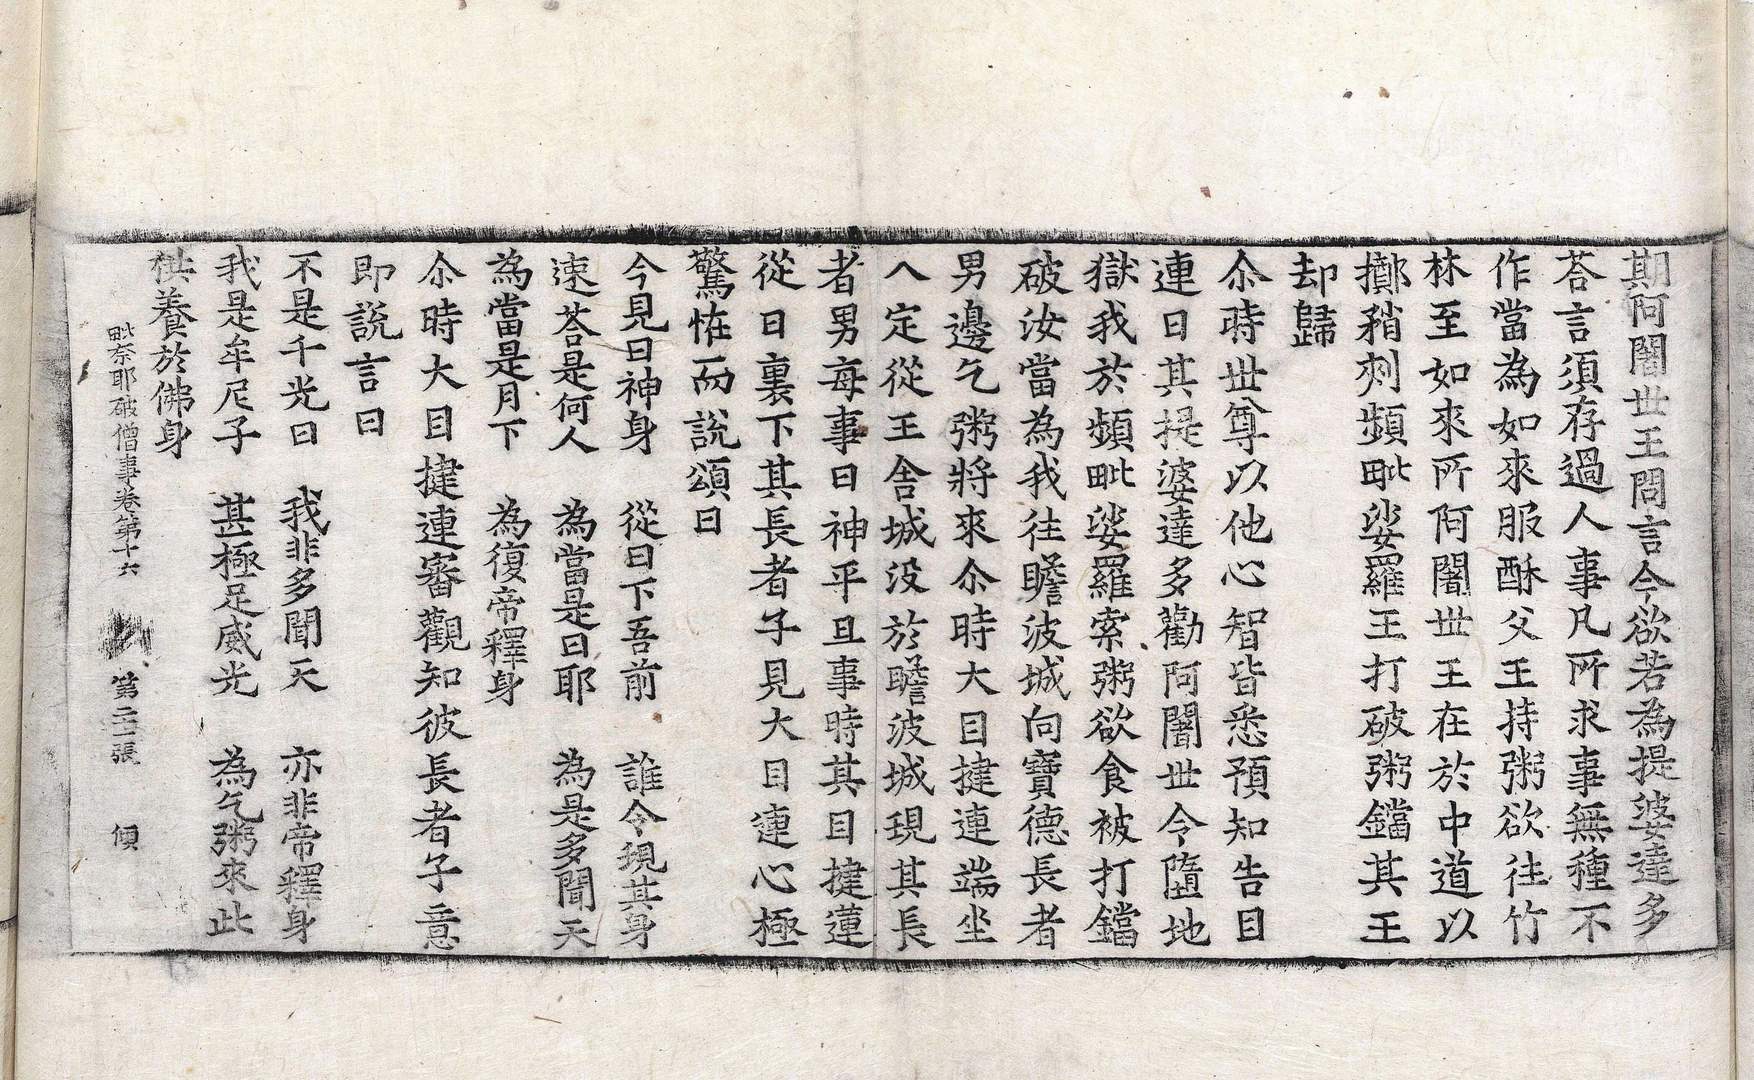 期阿闍世王問言今欲若為提婆達多
荅言須存過人事凡所求事無種不
作當為如來服酥父王持粥欲往竹
林至如來所阿闍世王在於中道以
擲矟刾頻毗娑羅王打破粥鐺其王
却歸
尒時世尊以他心智皆悉預知告目
連曰其提婆達多勸阿闍世令墮地
獄我於頻毗娑羅索粥欲食被打鐺
破汝當為我往瞻波城向寶德長者
男邊乞粥將來尒時大目揵連端坐
入定從王舍城没於瞻波城現其長
者男每事日神平旦事時其目揵蓮
從日裏下其長者子見大目連心極
驚恠而說頌曰
今見日神身　從日下吾前　誰令現其身
速荅是何人　為當是日耶　為是多聞天
為當是月下　為復帝釋身
尒時大目揵連審觀知彼長者子意
即說言曰
不是千光日　我非多聞天　亦非帝釋身
我是牟尼子　甚極足威光　為乞粥來此
供養於佛身
毗奈耶破僧事卷第十六　第二張　傾